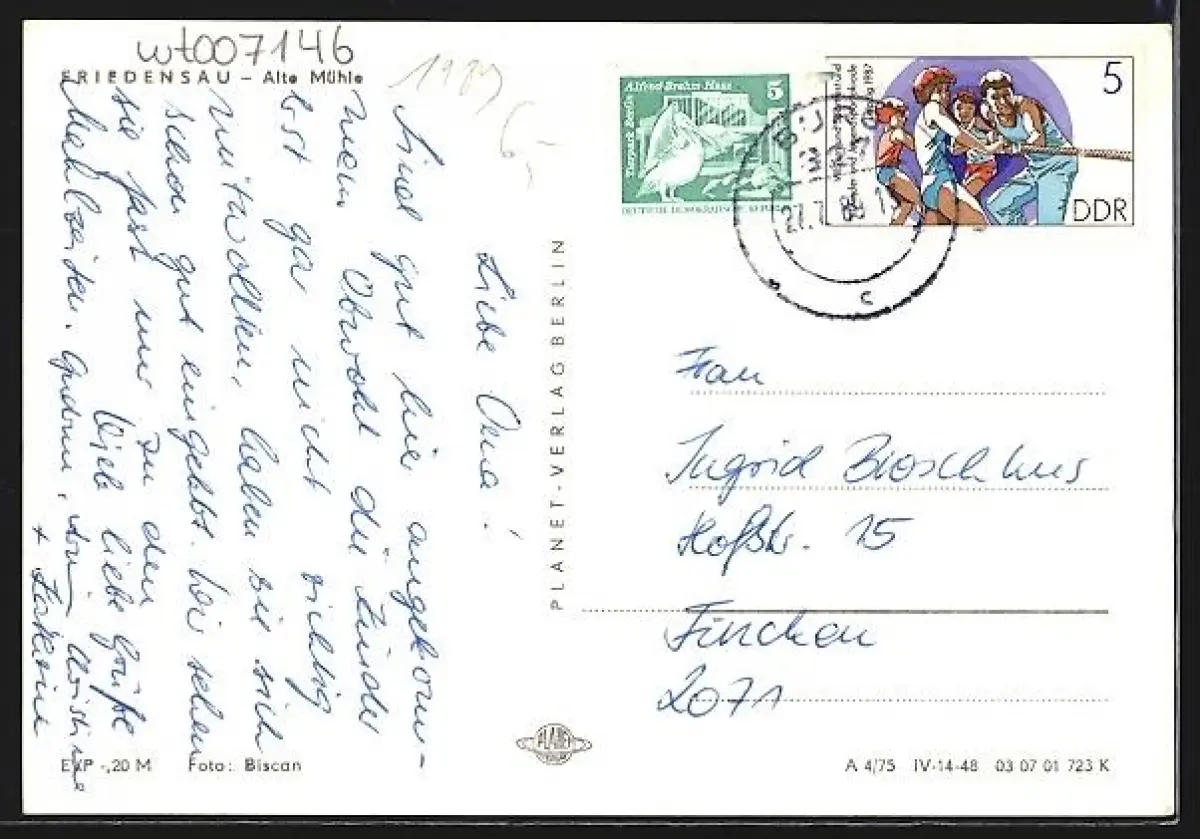 wt007146
FRIEDENSAU – Alte Mühle
1989
6,-
Liebe Oma!
Sind gut hier angekom-
men. Obwohl die Kinder
erst gar nicht richtig
mitwollten, haben sie sich
schon gut eingelebt. Wir sehen
sie fast nur zu den
Mahlzeiten. Viele liebe Grüße
Christine
+
EVP -,20 M
Foto: Biscan
PLANET-VERLAG BERLIN
PLANET
VERLAG
Alfred Brehm Haus
5
Tierpark Berlin
DEUTSCHE DEMOKRATISCHE REPUBLIK
5
1987
DDR
BURG
27.7.
c
Frau
Ingrid
Hofstr. 15
Fincken
2071
A 4/75 IV-14-48 03 07 01 723 K